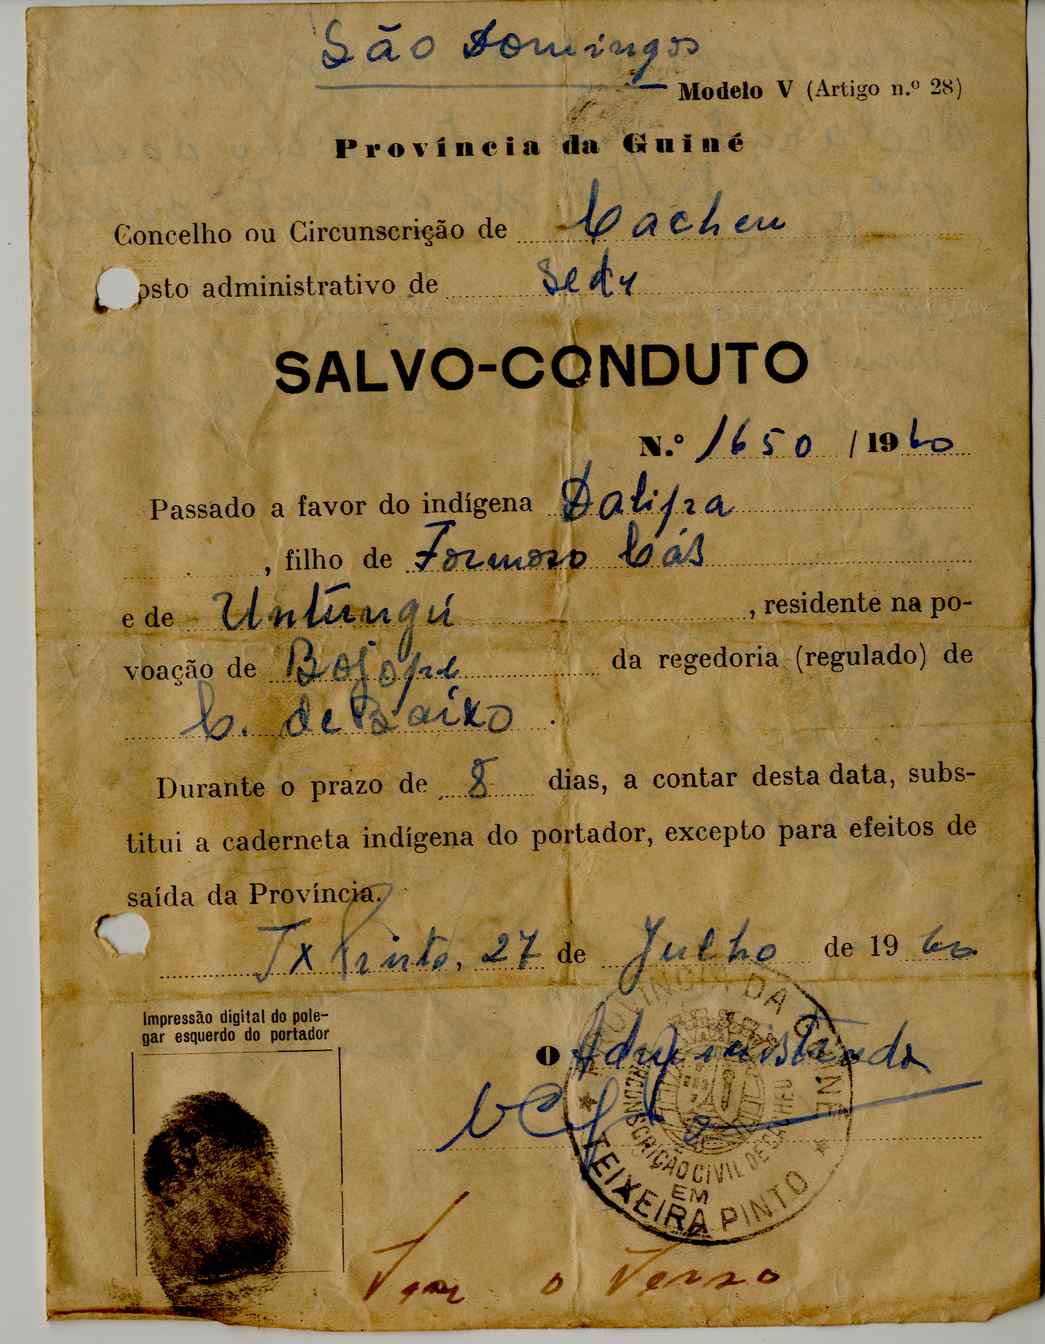 São Domingos
Modelo V (Artigo n.º 28)
Província da Guiné
Concelho ou Circunscrição de Cacheu
osto administrativo de Sede
SALVO-CONDUTO
N.º 1650 / 1960
Passado a favor do indígena Dalifra
, filho de Formoso Cás
e de Untungú , residente na po-
voação de Bojope da regedoria (regulado) de
C. de Baixo .
Durante o prazo de 8 dias, a contar desta data, subs-
titui a caderneta indígena do portador, excepto para efeitos de
saída da Província.
Tx Pinto, 27 de Julho de 1960
Impressão digital do pole-
gar esquerdo do portador
O Administrador
PROVINCIA DA GUINÉ
CIRCUNSCRIÇÃO CIVIL DE CACHEU
EM
TEIXEIRA PINTO
Ver o Verso